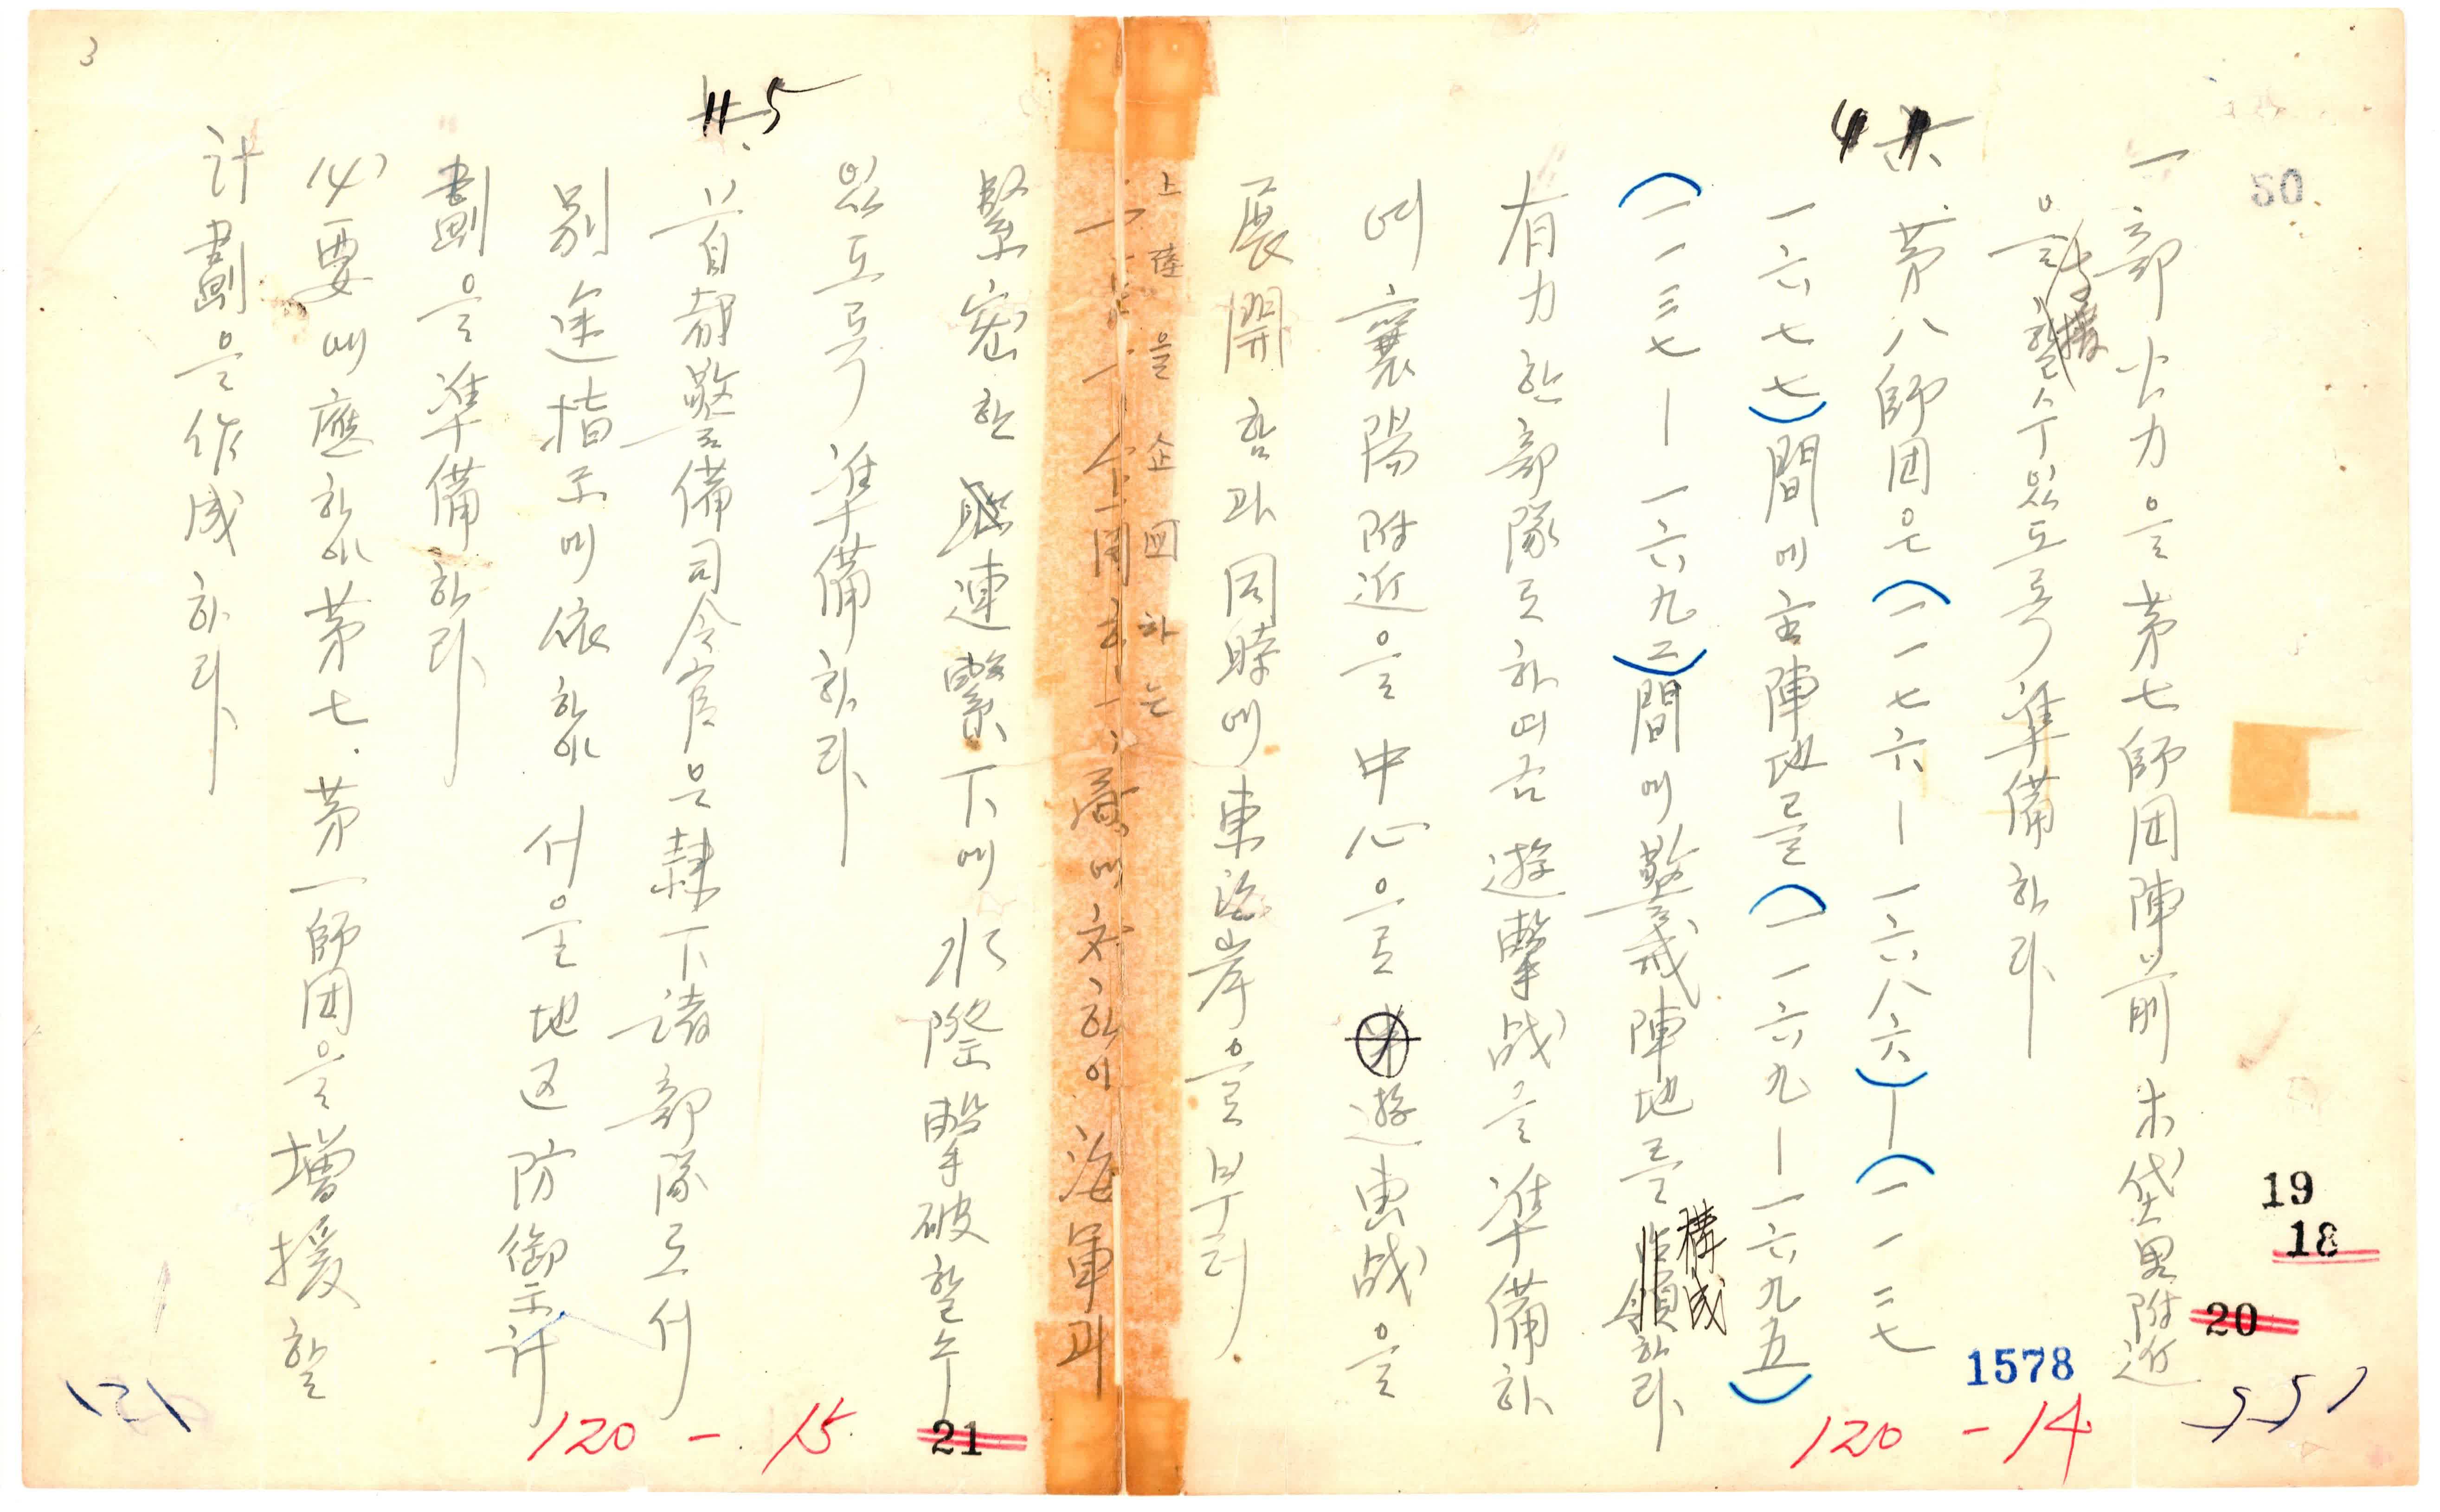 50
一部火力은 第七師団陣前 木垈里附近
을 支援할 수 있도록 準備하라
4 六. 第八師団은 (一一七六—一六八六)—(一一二七
一六七七)間에 主陣地를 (一一六九—一六九五)
(一一三七—一六九二)間에 警戒陣地를 構成하라
有力한 部隊로 하여금 遊擊战을 準備하
며 襄陽附近을 中心으로 遊擊战을
展開함과 同時에 東海岸으로부터
上陸을 企図하는
에 対하여 海軍과
緊密한 連繫下에 水際擊破할 수
있도록 準備하라
5
首都警備司令官은 隷下諸部隊로서
別途指示에 依하여 서울地区防御計
劃을 準備하라
必要에 應하여 第七. 第一師団을 增援할
計劃을 作成하라
19
18
20
1578
551
120 - 14
21
120 - 15
121
3